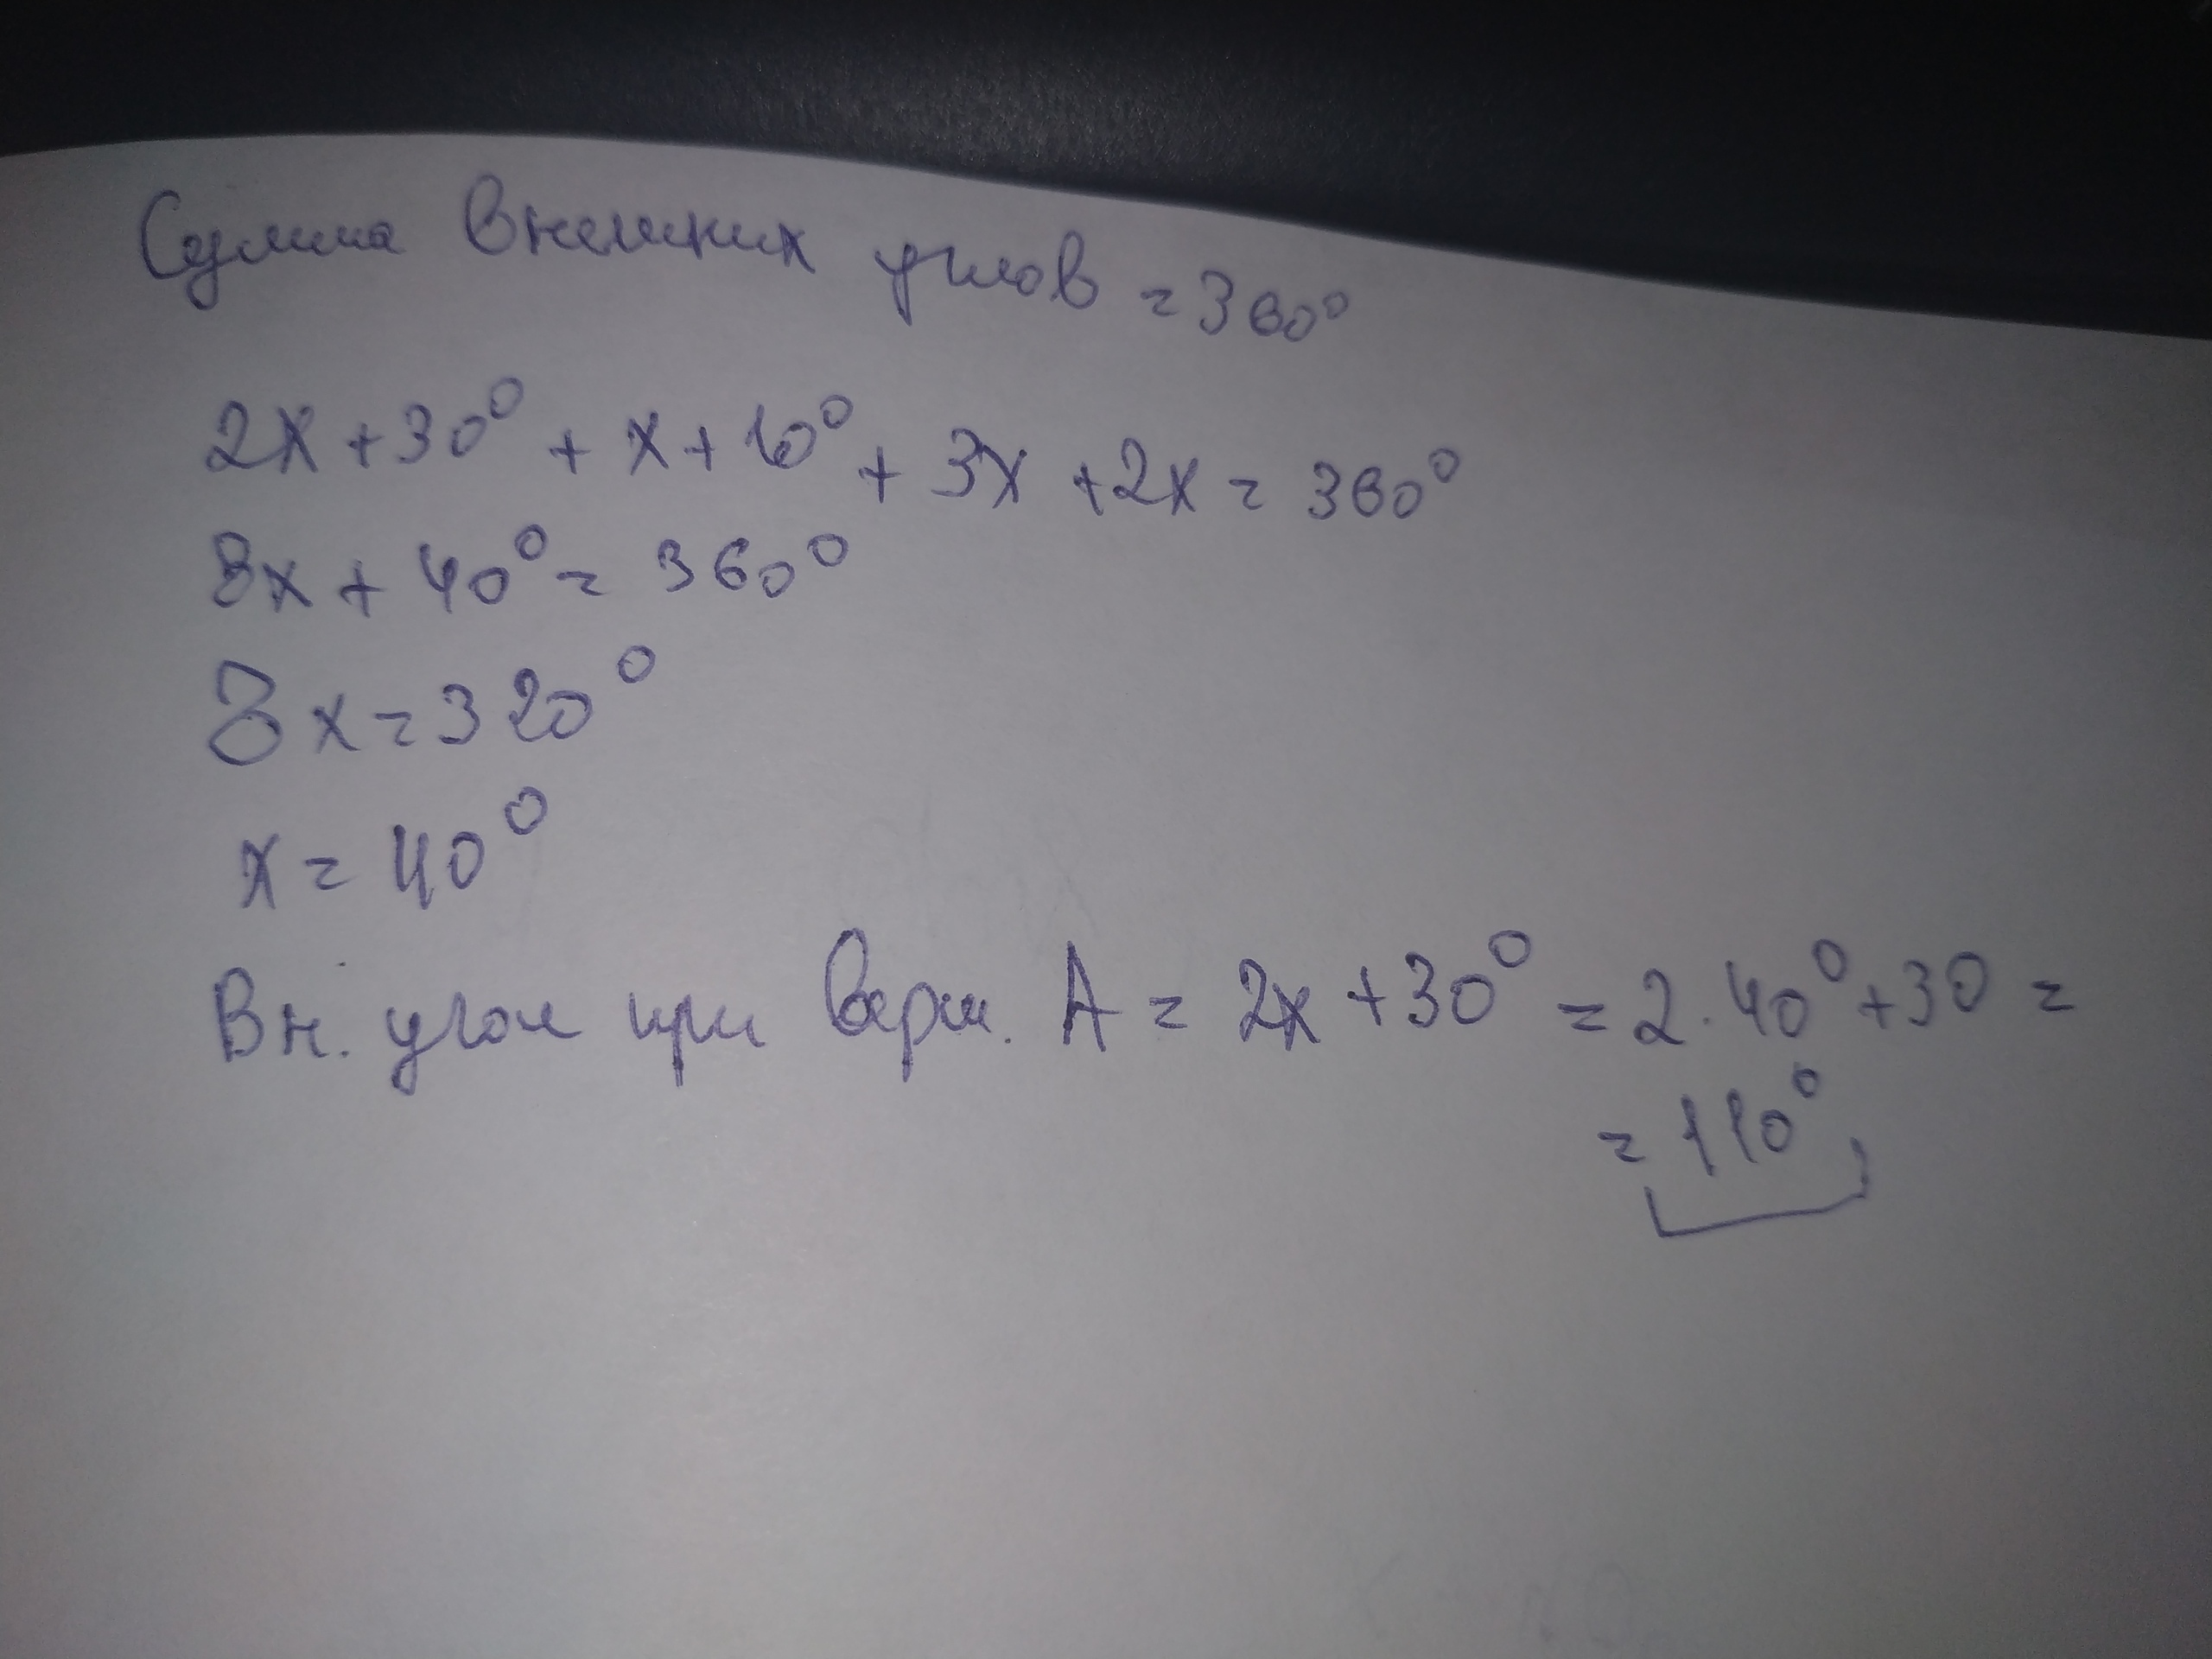 Сумма внешних углов = 360°
2x + 30° + x + 10° + 3x + 2x = 360°
8x + 40° = 360°
8x = 320°
x = 40°
Вн. угол при верш. A = 2x + 30° = 2 · 40° + 30 =
= 110°